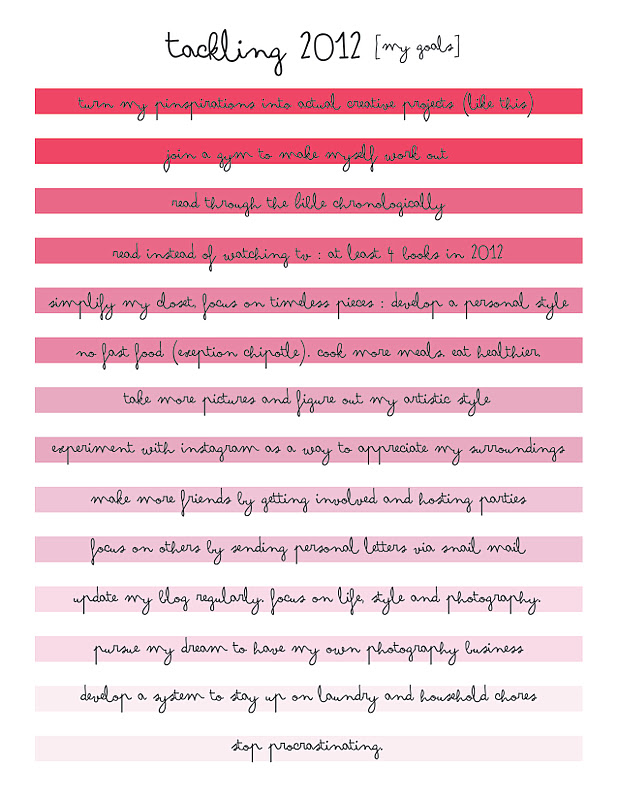 tackling 2012 [my goals]
turn my pinspirations into actual creative projects (like this)
join a gym to make myself work out
read through the bible chronologically
read instead of watching tv : at least 4 books in 2012
simplify my closet. focus on timeless pieces : develop a personal style
no fast food (exeption chipotle). cook more meals. eat healthier.
take more pictures and figure out my artistic style
experiment with instagram as a way to appreciate my surroundings
make more friends by getting involved and hosting parties
focus on others by sending personal letters via snail mail
update my blog regularly. focus on life, style and photography.
pursue my dream to have my own photography business
develop a system to stay up on laundry and household chores
stop procrastinating.